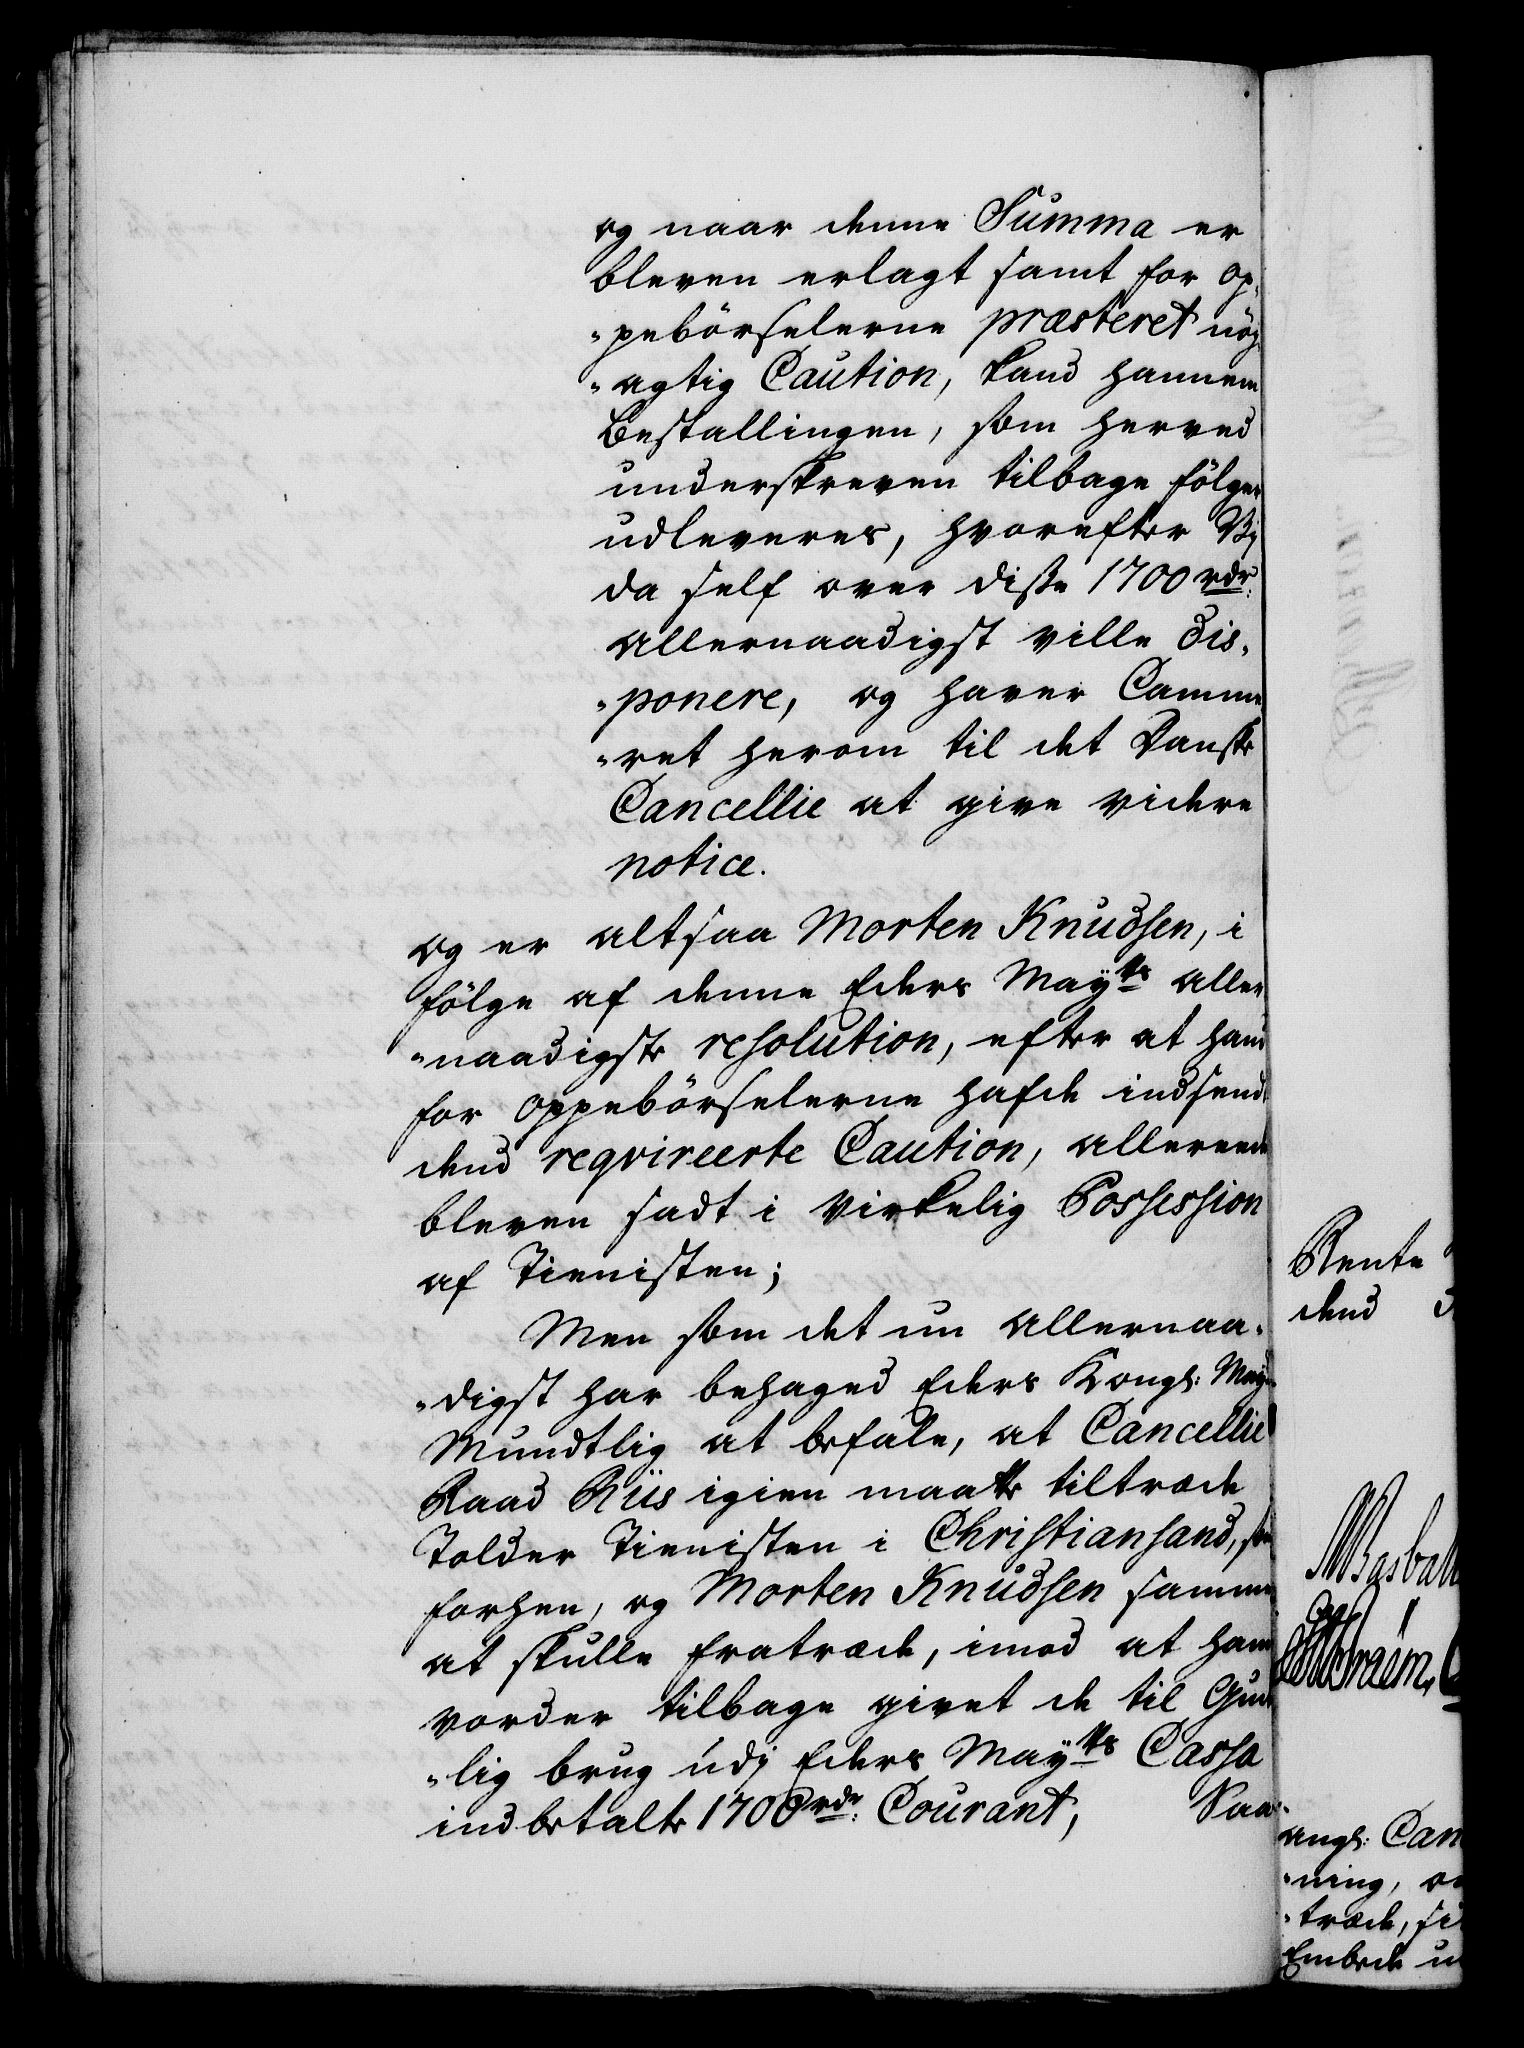 og naar denne Summa er
bleven erlagt samt for op„
„pebörselerne præsteret nöy
„agtig Caution, kand hannem
Bestallingen, som herved
underskreven tilbage fölger
udleveres, hvorefter Vj
da self over disse 1700 rdr:
allernaadigst ville dis„
„ponere, og haver Camme
„ret herom til det Danske
Cancellie at give videre
notice.
og er altsaa Morten Knudsen, i
fölge af denne Eders Mayts aller
„naadigste resolution, efter at hand
for oppebörselerne hafde indsendt
dend reqvireerte Caution, allereede
bleven sadt i virkelig Possession
af Tienisten;
Men som det nu allernaa„
„digst har behaged Eders Kongl: May
Mundtlig at befale, at Cancellie
Raad Riis igien maatte tiltræde
Tolder Tienisten i Christiansand, som
forhen, og Morten Knudsen samme
at skulle fratræde, imod at ham
vorder tilbage givet de til Gud
„lig brug udj Eders Mayts Cassa
indbetalte 1700 rdr: Courant, Saa
Rente
dend
angl: Can
„ning, o
„træde, si
Embede u